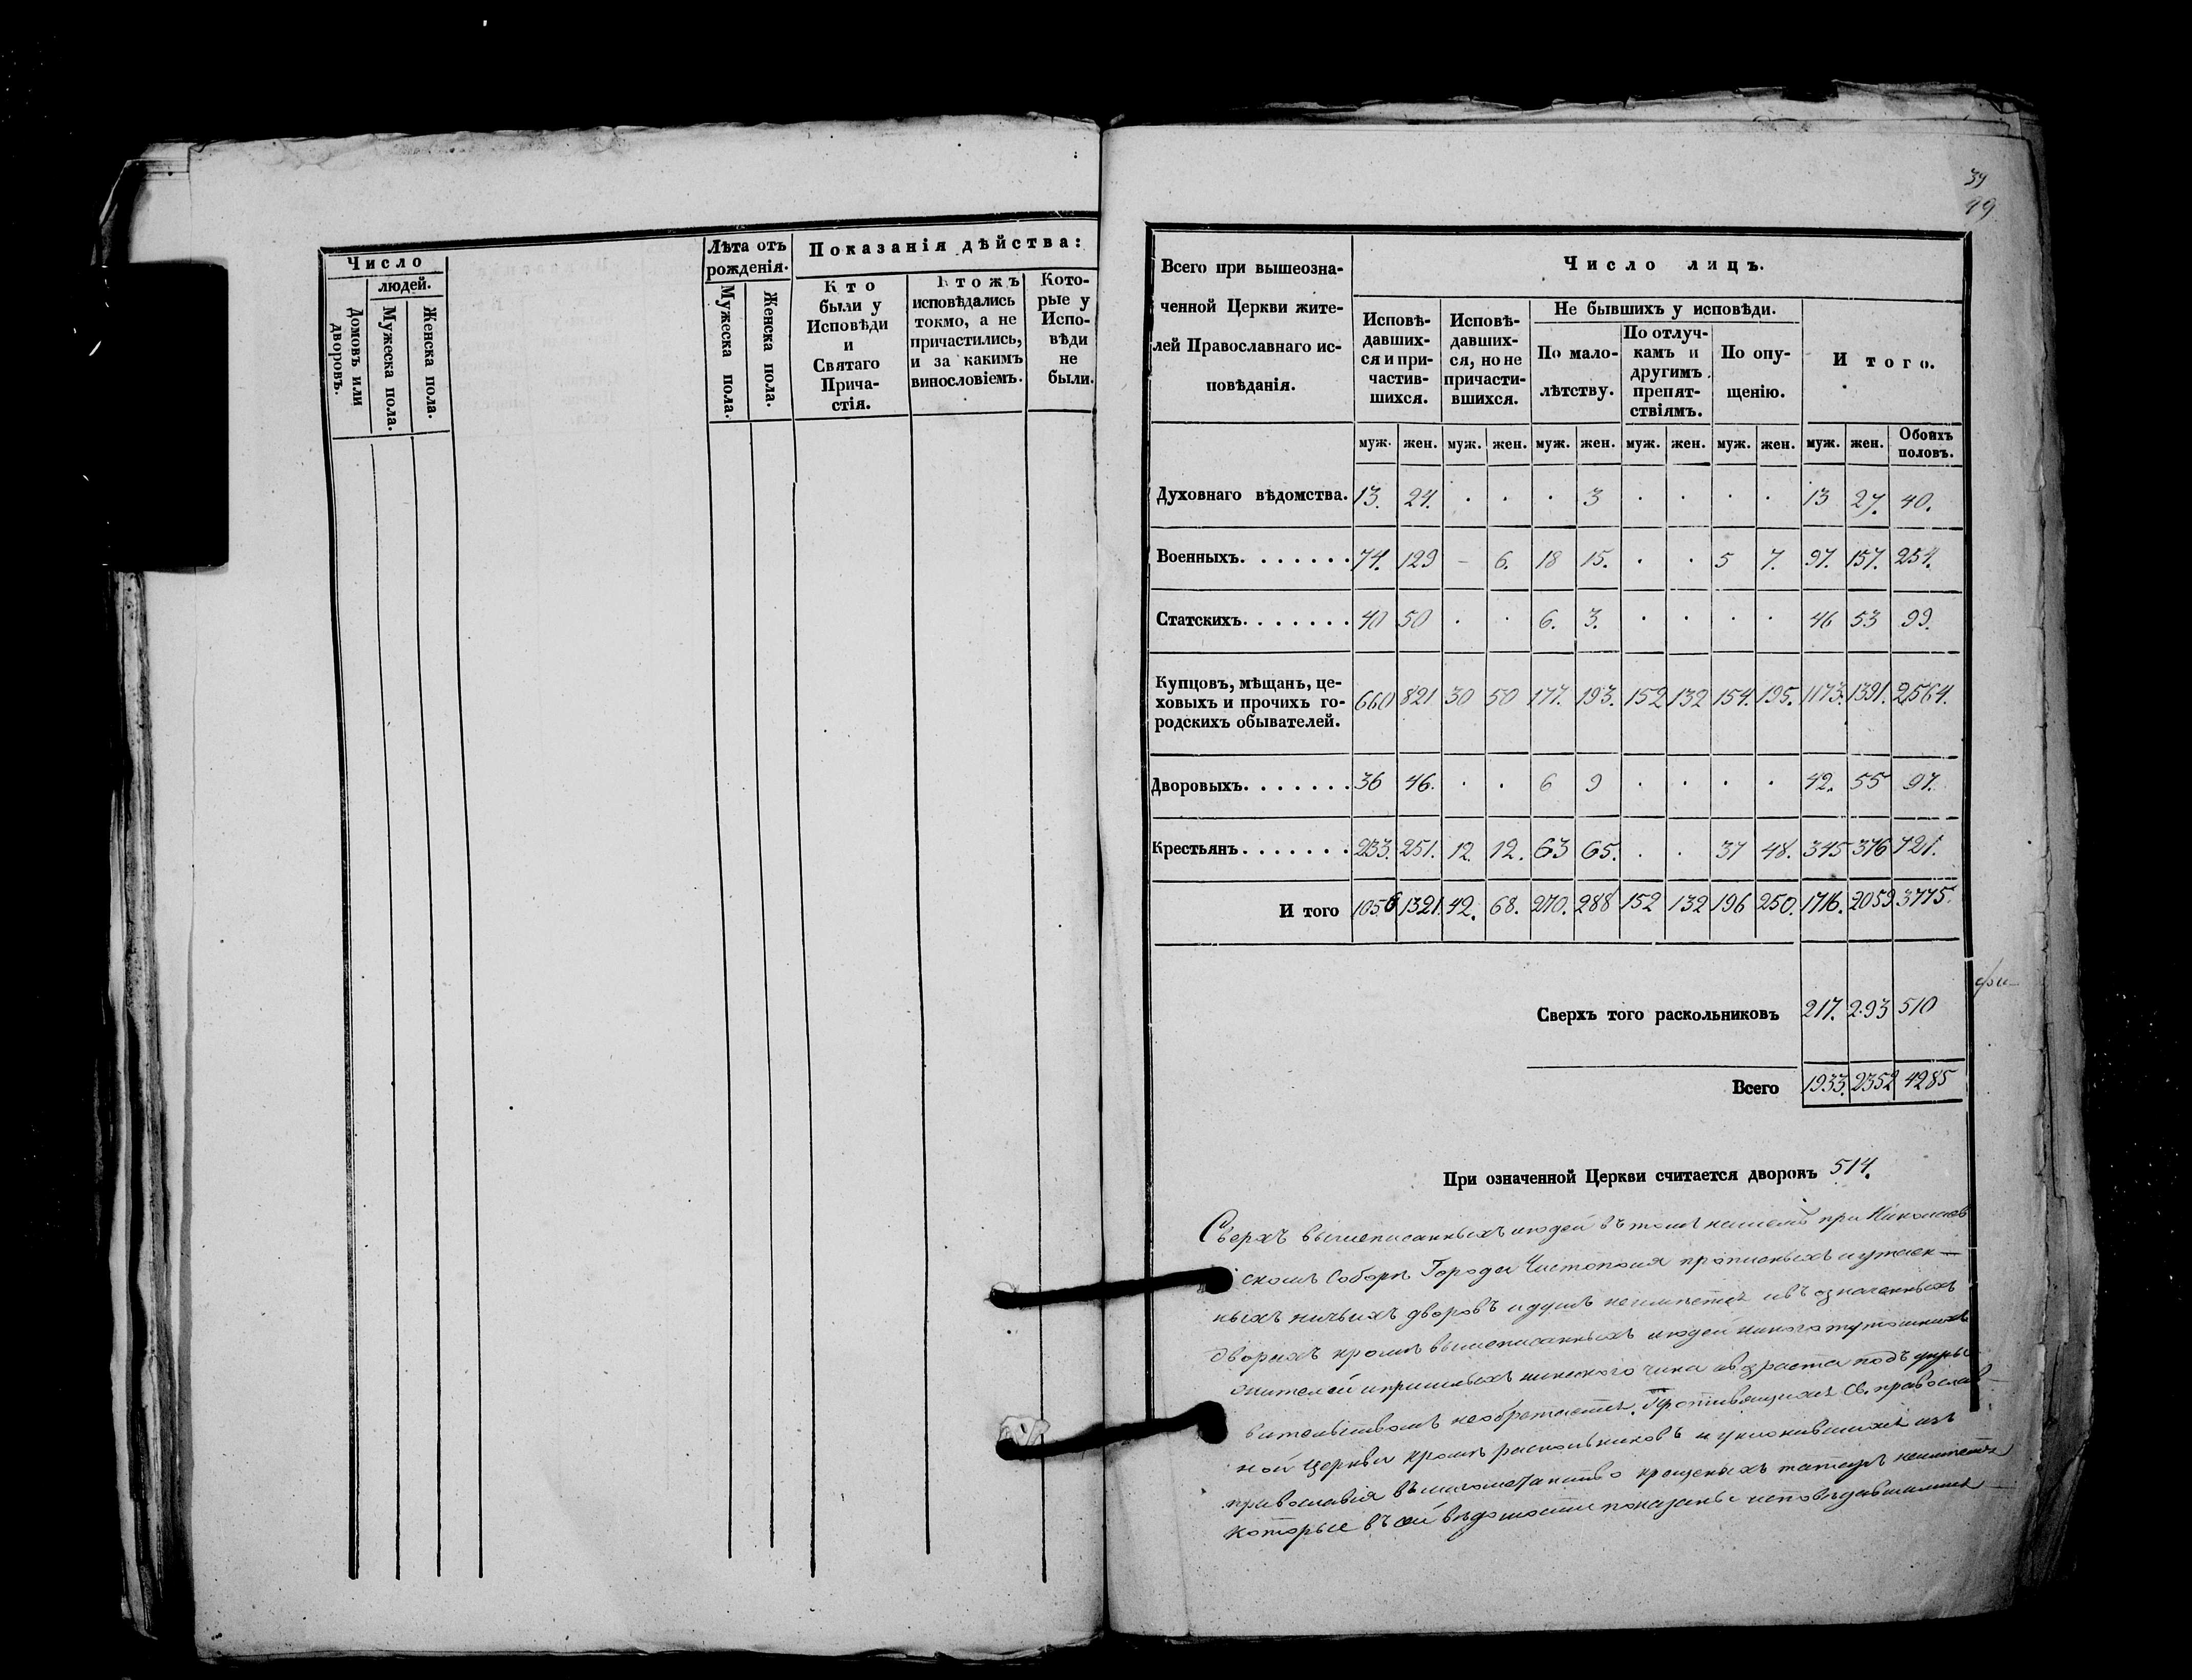 Число
людей.
Домовъ или дворовъ.
Мужеска пола.
Женска пола.
Лѣта отъ рожденія.
Мужеска пола.
Женска пола.
Показанія дѣйства:
Кто
были у
Исповѣди
и
Святаго
Прича-
стія.
Ктожъ
исповѣдались
токмо, а не
причастились,
и за какимъ
винословіемъ.
Кото-
рые у
Испо-
вѣди
не
были.
39
49
Всего при вышеозна-
ченной Церкви жите-
лей Православнаго ис-
повѣданія.
Число лицъ.
Исповѣ-
давших-
ся и при-
частив-
шихся.
Исповѣ-
давших-
ся, но не
причасти-
вшихся.
Не бывшихъ у исповѣди.
По мало-
лѣтству.
По отлуч-
камъ и
другимъ
препят-
ствіямъ.
По опу-
щенію.
Итого.
муж. жен. муж. жен. муж. жен. муж. жен. муж. жен. муж. жен. Обоихъ половъ.
Духовнаго вѣдомства. 13. 24. . . . 3 . . . . 13 27. 40.
Военныхъ. . . . . . . 74. 129 – 6. 18 15. . . 5 7. 97. 157. 254.
Статскихъ. . . . . . . 40 50 . . 6. 3. . . . . 46 53 99.
Купцовъ, мѣщанъ, це-
ховыхъ и прочихъ го-
родскихъ обывателей. 660 821 30 50 177. 193. 152 132 154. 195. 1173. 1391. 2564.
Дворовыхъ. . . . . . . 36 46. . . 6 9 . . . . 42. 55 97.
Крестьянъ. . . . . . . 233. 251. 12. 12. 63 65. . . 37 48. 345 376 721.
И того 1056 1321. 42. 68. 270. 288 152 132 196 250. 1716. 2059 3775.
Сверхъ того раскольниковъ 217. 293 510
Всего 1933. 2352 4285
При означенной Церкви считается дворовъ 514.
Сверхъ вышеписанныхъ людей въ томъ нашемъ при Николаев
скомъ Соборѣ Города Чистополя прописныхъ и утаен-
ныхъ ничьихъ дворовъ и душъ неимѣется ивъ означенныхъ
дворахъ кромѣ вышеписанныхъ людей никого тутошнихъ
жителей и пришлыхъ никакого чина ивозраста подъ укры
вательствомъ необретается. Противящихся Св. православ-
ной Церкви кромѣ раскольниковъ и уклонившихся изъ
православія въ магометанство крещеныхъ татаръ неимѣется
которые въ сей вѣдомости показаны исповѣдавшимися